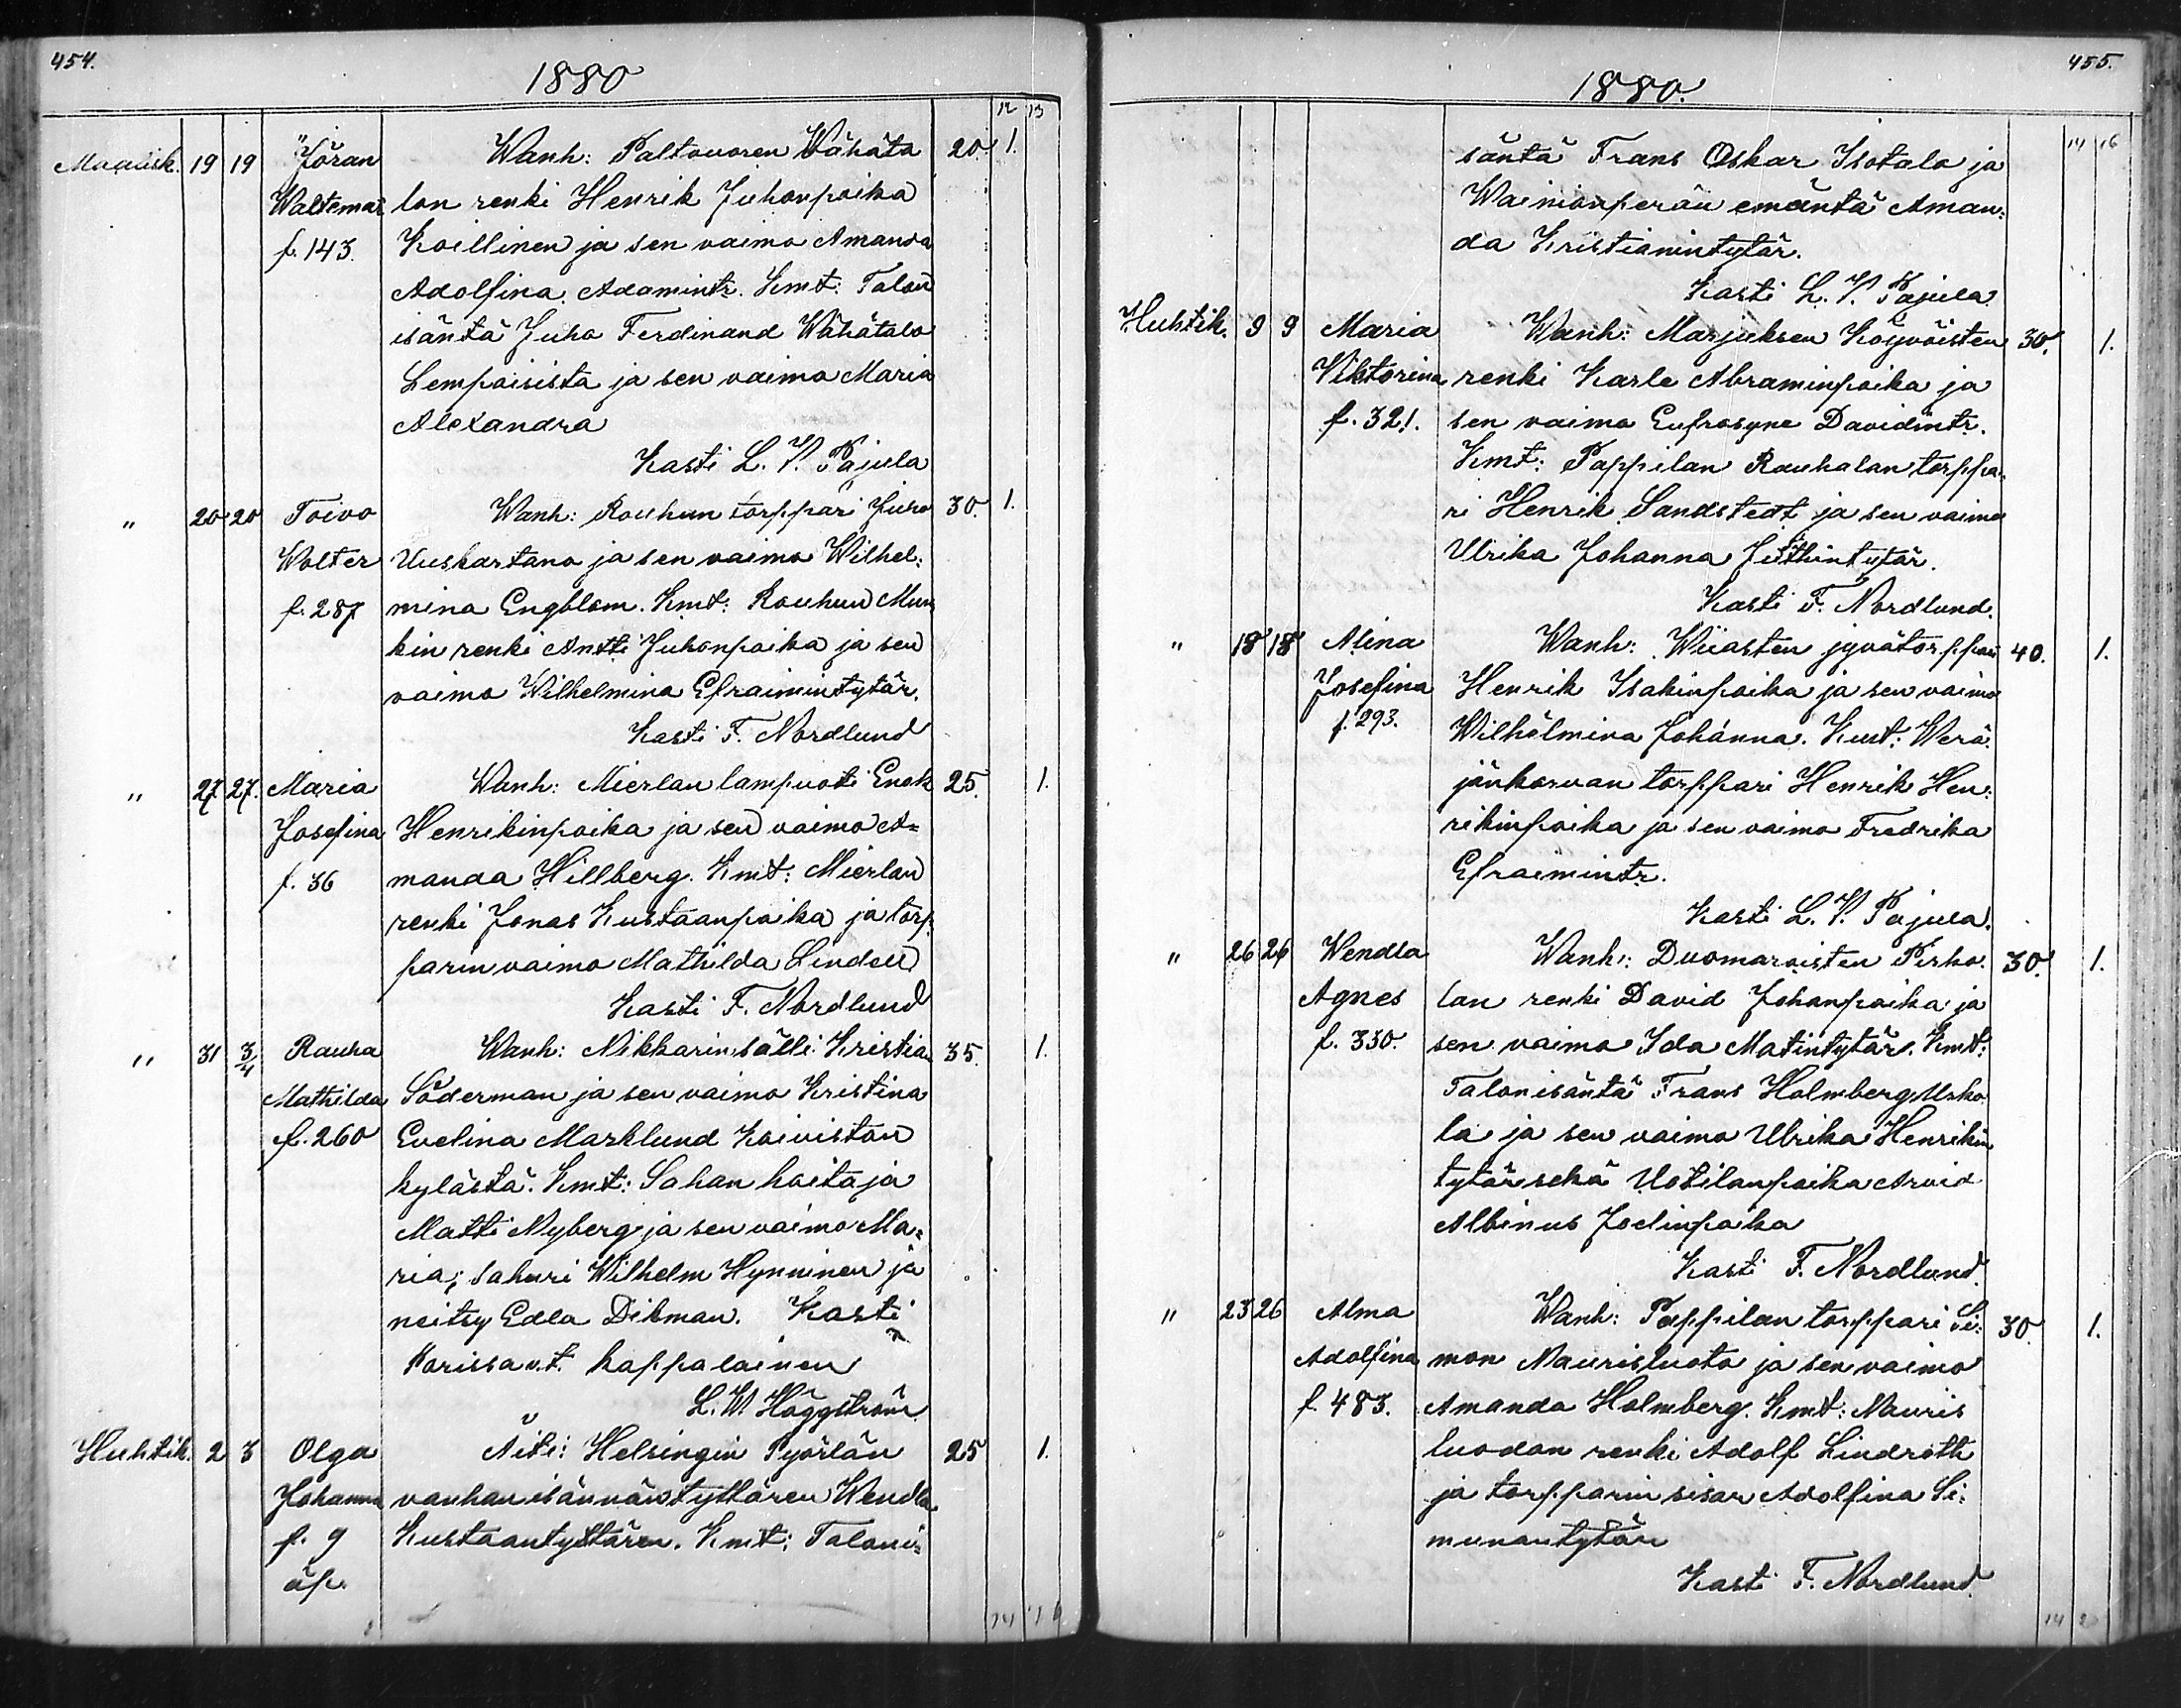 454.
1880
12 13
Maalisk. 19 19 Jöran Wanh: Paltvuoren Wähäta 20. 1.
Waltemar lon renki Henrik Juhonpoika
f. 143. Koellinen ja sen vaimo Amanda
Adolfina Adamintr. Kmt: Talon
isäntä Juho Ferdinand Wähätalo
Lempoisista ja sen vaimo Maria
Alexandra
Kasti L. V. Pajula
" 20 20 Toivo Wanh: Rouhun torppari Juho 30. 1.
Wolter Uuskartano ja sen vaimo Wilhel:
f. 287 mina Engblom. Kmt: Rouhun Mun
kin renki Antti Juhonpoika ja sen
vaimo Wilhelmina Efraimintytär.
Kasti F. Nordlund
" 27 27. Maria Wanh: Mierlan lampuoti Enok 25. 1.
Josefina Henrikinpoika ja sen vaimo A=
f. 36 manda Hillberg. Kmt: Mierlan
renki Jonas Kustaanpoika ja torp:
parin vaimo Mathilda Linden
Kasti F. Nordlund
" 31 3/4 Rauha Wanh: Nikkarinsälli Kristian 35. 1.
Mathilda Söderman ja sen vaimo Kristina
f. 260 Evelina Marklund Koiviston
kylästä. Kmt: Sahan hoitaja
Matti Nyberg ja sen vaimo Ma=
ria; sahuri Wilhelm Hynninen ja
neitsy Edla Dikman. Kasti
Porissa v.t. kappalainen
L. W. Häggström
Huhtik. 2 3 Olga Äiti: Helsingin Pyörlän 25 1.
Johanna vanhan isännän tyttären Wendla
f. 9 Kustaantyttären. Kmt: Taloni=
äp.
14 16
455.
1880.
14 16
säntä Frans Oskar Isotalo ja
Wainionperän emäntä Aman:
da Kristianintytär.
Kasti L. V. Pajula
Huhtik. 9 9 Maria Wanh: Marjuksen Köyvöisten 30. 1.
Viktorina renki Karle Abraminpoika ja
f. 321. sen vaimo Eufrosyne Davidintr.
Kmt: Pappilan Rauhalan torppa:
ri Henrik Sandstedt ja sen vaimo
Ulrika Johanna Juthintytär.
Kasti F. Nordlund.
" 18 18 Alina Wanh: Wiiasten jyvätorppari 40. 1.
Josefina Henrik Isakinpoika ja sen vaimo
f. 293. Wilhelmina Johanna. Kmt: Werä
jänkorvan torppari Henrik Hen:
rikinpoika ja sen vaimo Fredrika
Efraimintr.
Kasti L. V. Pajula.
" 26 26 Wendla Wanh: Duomaroisten Pirho. 30. 1.
Agnes lan renki David Johanpoika ja
f. 330. sen vaimo Ida Matintytär. Kmt:
Talonisäntä Frans Holmberg Urho
la ja sen vaimo Ulrika Henrikin
tytär sekä Uotilanpoika Arvid
Albinus Joelinpoika
Kasti F. Nordlund.
" 23 26 Alma Wanh: Pappilan torppari Si: 30. 1.
Adolfina mon Naurisluoto ja sen vaimo
f. 483. Amanda Holmberg. Kmt: Nauris
luodon renki Adolf Lindroth
ja torpparin sisar Adolfina Si:
munantytär
Kasti F. Nordlund
14